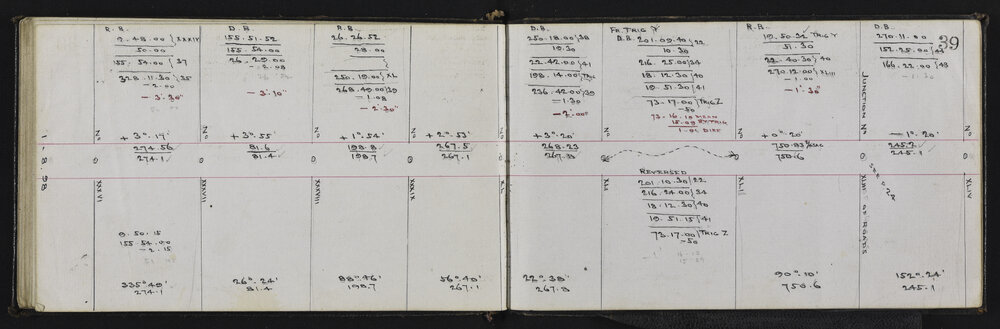 39
R. B.
2. 48. 00 } XXXIV
50. 00
155. 54. 00 } 37
328. 11. 30 } 35
- 2. 00
- 3' 30"
D. B.
155. 51. 52
155. 54. 00
26. 29. 00
- 2. 08
- 3' 10"
R. B.
26. 26. 52
28. 00
250. 19. 00 } XL
268. 49. 00 } 39
- 1. 08
- 2' 30"
D. B.
250. 18. 00 } 38
19. 30
22. 42. 00 } 41
198. 14. 00 } TRIG
236. 42. 00 } 39
- 1. 30
- 2' 00"
FR. TRIG Y
D. B. 201. 09. 40 } 22
10. 30
216. 25. 00 } 34
18. 12. 30 } 40
19. 51. 30 } 41
73. 17. 00 } TRIG Z
- 50
73. 16. 10 MEAN
15. 09 EX TRIG
1. 01 DIFF
R. B.
19. 50. 32 TRIG Y
51. 30
22. 40. 30 } 40
270. 12. 00 } XLIII
- 1. 00
- 1' 30"
D. B.
270. 11. 00
152. 25. 00 } 44
166. 22. 00 } 43
- 1. 30
1. 8. 98
No
+ 3° 17'
No
+ 3° 55'
No
+ 1° 54'
No
+ 2° 53'
No
+ 3° 20'
No
+ 0° 20'
JUNCTION No
- 1° 20'
No
0
274.56
274.1
0
81.6
81.4
0
198.8
198.7
0
267.5
267.1
0
268.23
267.8
0
0
750.6
0
245.2
245.1
0
XXXVI
XXXVII
XXXVIII
XXXIX
XL
XLI
XLII
XLIII OF ROADS
XLIV
REVERSED
201. 10. 30 } 22
216. 24. 00 } 34
18. 12. 30 } 40
19. 51. 15 } 41
73. 17. 00 } TRIG Z
- 50
9. 50. 15
155. 54. 00
- 2. 15
335° 49'
274.1
26° 24'
81.4
88° 46'
198.7
56° 40'
267.1
22° 38'
267.8
90° 10'
750.6
152° 24'
245.1